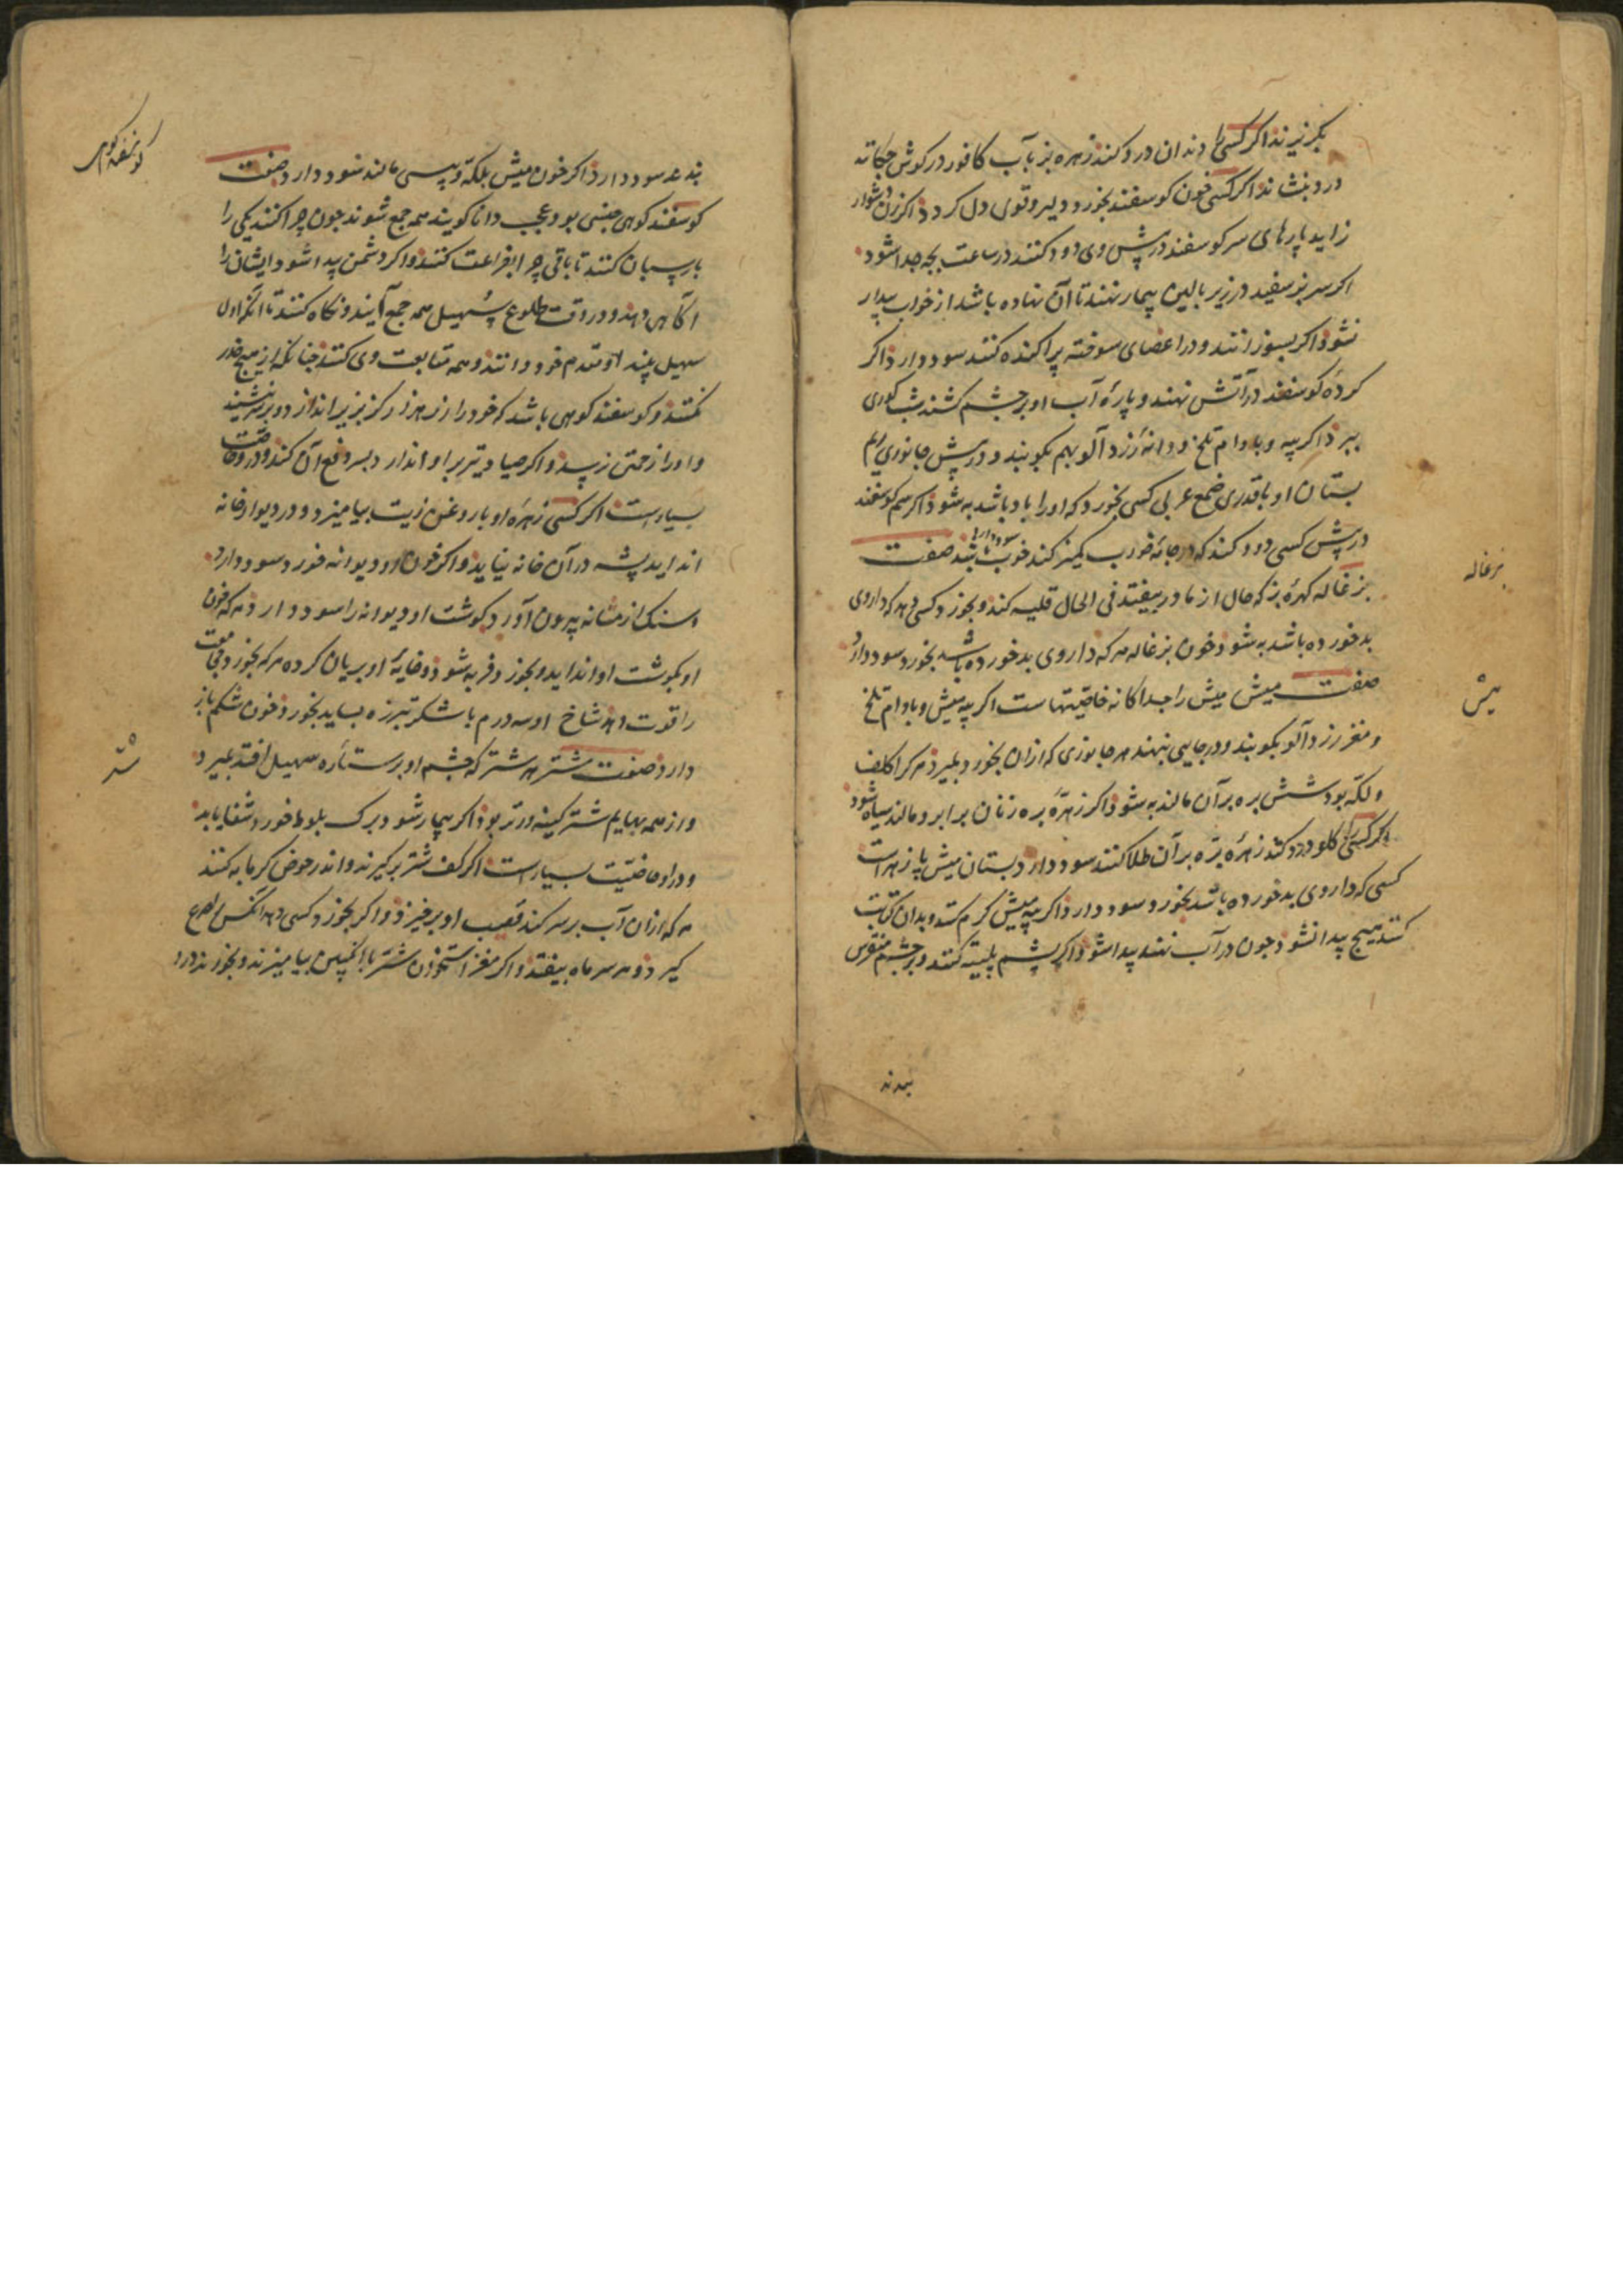 بکریزند اکر کسی را دندان درد کند زهره بز بآب کافور در کوش چکاند
درد بنشاند اکر کسی خون کوسفند بخورد دلیر و قوی دل کردد اکر زن دشوار
زاید پارهای سر کوسفند در پیش وی دود کنند در ساعت بچه جدا شود
اکر سر بز سفید در زیر بالین بیمار نهند تا آن نهاده باشد از خواب بیدار
نشود اکر بسوزانند و در اعضای سوخته پراکنده کنند سود دارد اکر
کرده کوسفند در آتش نهند و پارهٔ آب او در چشم کشند شب کوری
ببرد اکر پیه و بادام تلخ و دانهٔ زردآلو بهم بکوبند و در پیش جانوری
بستان او با قدری ضمع عربی کسی بخورد که او را باد باشد به شود اکر سم کوسفند
در پیش کسی دود کنند که در جامهٔ خواب کمیز کند سود دارد صفت
بزغاله کهرهٔ بز که حال از مادر بیفتد فی الحال قلیه کند و بخورد کسی دهد که داروی
بد خورده باشد به شود خون بزغاله هر که داروی بد خورده باشد بخورد سود دارد
صفت میش میش را جداکانه خاصیتهاست اکر پیه میش و بادام تلخ
و مغز زردآلو بکوبند و در جایی نهند هر جانوری که از ان بخورد بمیرد هر کرا کلف
و لکه بود شش بره بر آن مالند به شود اکر زهرهٔ بره زنان برابرو مالند سیاه شود
اکر کسی را کلو درد کند زهرهٔ بره بر آن طلا کنند سود دارد بستان میش پازهراست
کسی که داروی بد خورده باشد بخورد سود دارد اکر پیه میش کرم کنند و بدان کتابت
کنند هیچ پیدا نشود چون در آب نهند پیدا شود اکر پشم پلیته کنند و بر چشم منقرس
بزغاله
میش
بندند
بندند سود دارد اکر خون میش بلکه و پیسی مالند سود دارد صفت
کوسفند کوهی جنسی بود عجب دانا کویند همه جمع شوند چون چرا کنند یکی را
پاسبان کنند تا باقی چرا بفراغت کنند و اکر دشمن پیدا شود ایشان را
آکاهی دهد و در وقت طلوع سهیل همه جمع آیند و نکاه کنند تا آنکه اول
سهیل بیند او مقدم خود دانند و همه متابعت وی کنند چنانکه از هیچ حذر
نکنند و کوسفند کوهی باشد که خود را از هزار کز بزیر اندازد و بر نشیند
و او را زحمتی نرسد و اکر صیاد تیر بر او اندازد بسر دفع آن کند و در وی خاصیت
بسیارست اکر کسی زهرهٔ او با روغن زیت بیامیزد و در دیوار خانه
انداید پشه در آن خانه نیاید و اکر خون او دیوانه خورد سود دارد
و سنک از مثانه بیرون آورد کوشت او دیوانه را سود دارد هر که خون
او بکوشت او انداید و بخورد فربه شود و خایهٔ او بریان کرده هر که بخورد مجامعت
را قوت دهد شاخ او سه درم با شکر تبرزه بساید بخورد خون شکم باز
دارد صفت شتر هر شتر که چشم او بر ستاره سهیل افتد بمیرد
و از همه بهایم شتر کینه ورتر بود اکر بیمار شود برک بلوط خورد شفا یابد
و در او خاصیت بسیارست اکر کف شتر برکیرند و اندر حوض کرمابه کنند
هر که از ان آب بر سر کند قضیب او برخیزد و اکر بخورد کسی دهد آنکس را صرع
کیرد و هر سر ماه بیفتد و اکر مغز استخوان شتر با انکبین بیامیزند و بخورند درد
کوسفند کوهی
شتر